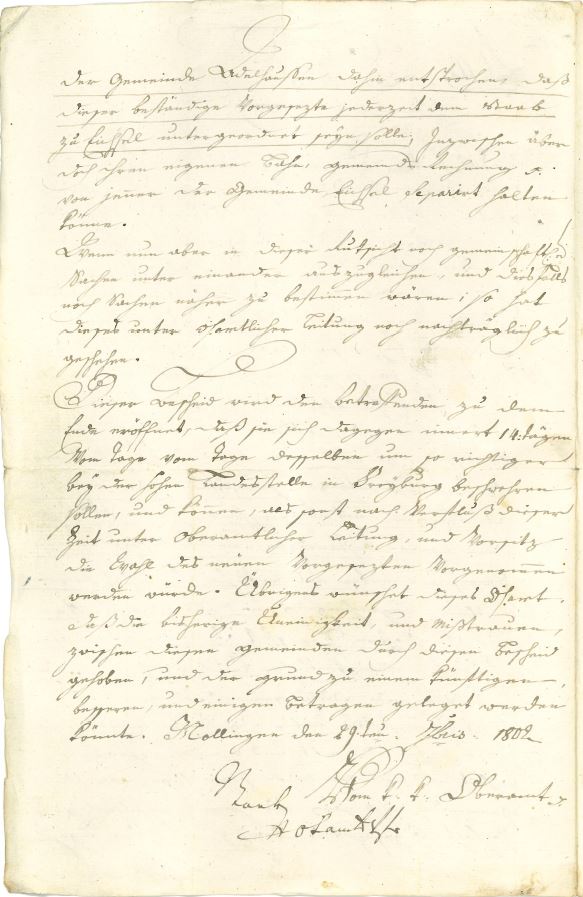 der Gemeinde Adelhaussen dahin entsprochen, daß
dieser beständige Vorgesezte jederzeit dem Staab
zu Eichsel untergeordnet seyn solle, Inzwischen aber
doch ihren eigenen Bahn, gemeinds Rechnung p.
von jenner der Gemeinde Eichsel separirt halten
könne.
Wenn nun aber in dieser Rucksicht noch gemeinschaftl.
Sachen unter einander auszugleichen, und diesfalls
noch Sachen näher zu bestimen wären; so hat
dieses unter Oberamtlicher Leitung noch nachträglich zu
geschehen.
Dieser Bescheid wird den Betreffenden zu dem
Ende eröffnet, daß sie sich dagegen innert 14. tägen
Vom tage vom tage desselben um so richtiger
bey der hohen Landesstelle in Freyburg beschwehren
sollen, und können, als sonst nach Verfluß dieser
Zeit unter Oberamtlicher Leitung, und Vorsitz
die Wahl des neuen Vorgesezten Vorgenommen
werden würde. Übrigens wünschet dieses Oberamt,
daß die bisherige Uneinigkeit, und Mißtrauen,
zwischen diesen gemeinden durch diesen Bescheid
gehoben, und der grund zu einem künftigen
besseren, und einigen betragen geleget werden
könnte. Mollingen den 29.ten 1802
Vom k. k. Oberamt